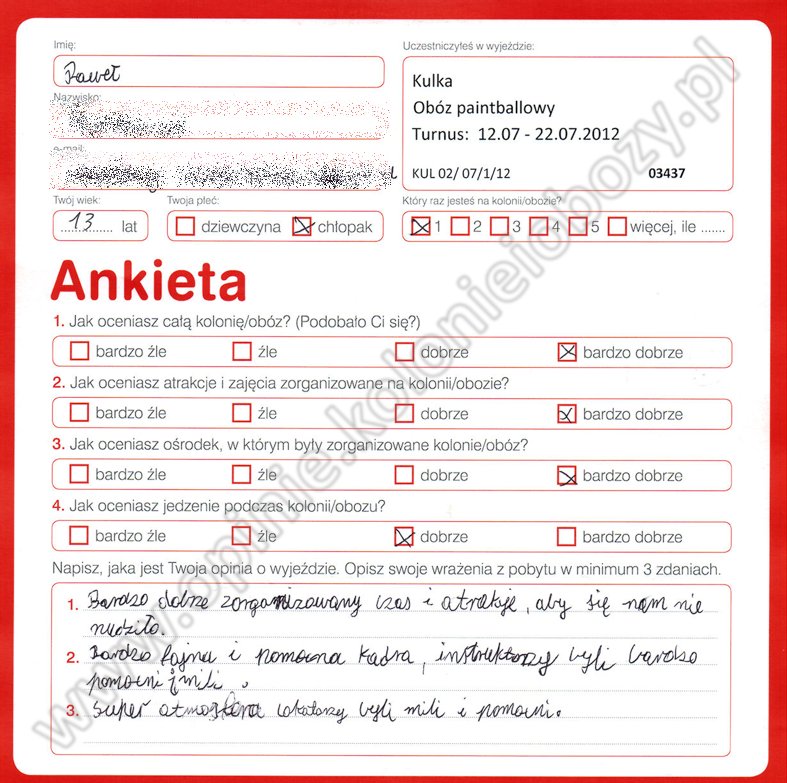 Imię:
Paweł
Nazwisko:
e-mail:
Uczestniczyłeś w wyjeździe:
Kulka
Obóz paintballowy
Turnus: 12.07 - 22.07.2012
KUL 02/ 07/1/12 03437
Twój wiek:
13 lat
Twoja płeć:
dziewczyna chłopak
Który raz jesteś na kolonii/obozie?
1 2 3 4 5 więcej, ile .......
Ankieta
1. Jak oceniasz całą kolonię/obóz? (Podobało Ci się?)
bardzo źle źle dobrze bardzo dobrze
2. Jak oceniasz atrakcje i zajęcia zorganizowane na kolonii/obozie?
bardzo źle źle dobrze bardzo dobrze
3. Jak oceniasz ośrodek, w którym były zorganizowane kolonie/obóz?
bardzo źle źle dobrze bardzo dobrze
4. Jak oceniasz jedzenie podczas kolonii/obozu?
bardzo źle źle dobrze bardzo dobrze
Napisz, jaka jest Twoja opinia o wyjeździe. Opisz swoje wrażenia z pobytu w minimum 3 zdaniach.
1. Bardzo dobrze zorganizowany czas i atrakcje, aby się nam nie
nudziło.
2. Bardzo fajna i pomocna kadra, instruktorzy byli bardzo
pomocni i mili.
3. Super atmosfera lokatorzy byli mili i pomocni.
www.opinie.kolonieiobozy.pl